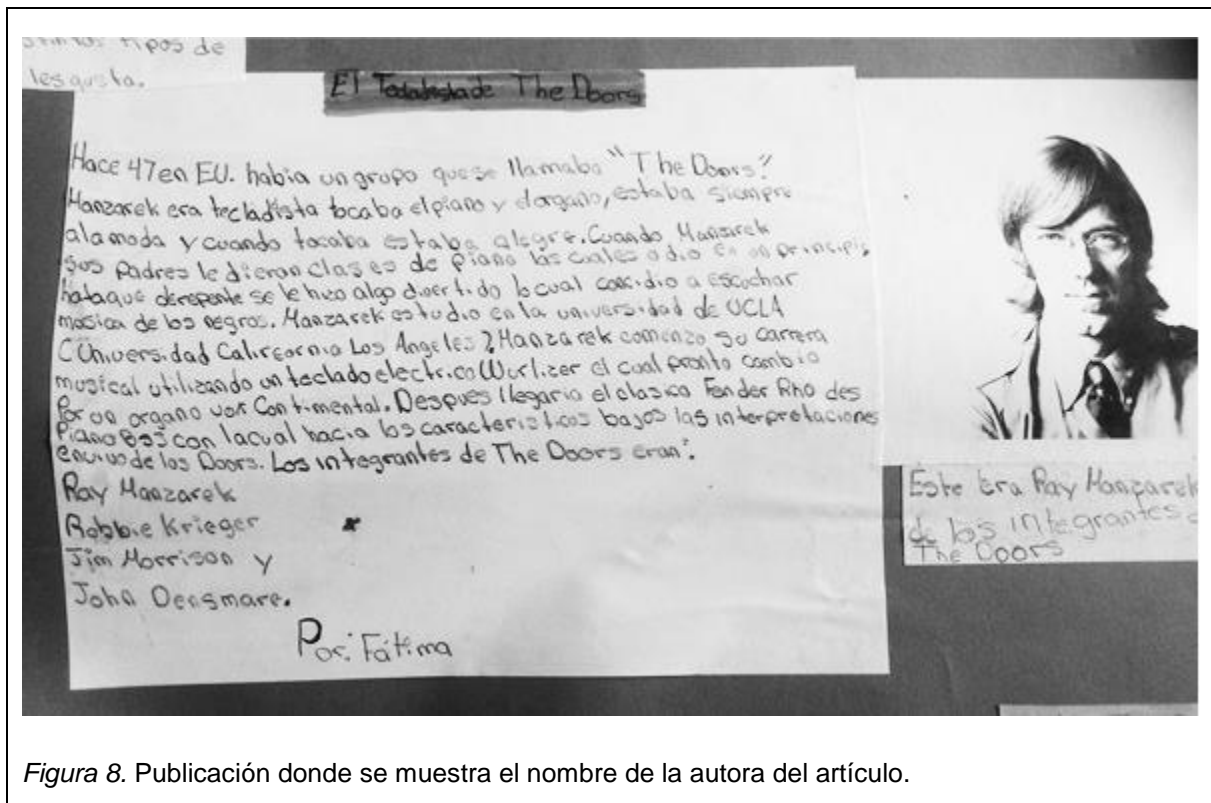 tipos de
les gusta.
El Tecladista de The Doors
Hace 47 en EU. habia un grupo que se llamaba "The Doors".
Manzarek era tecladista tocaba el piano y el organo, estaba siempre
a la moda y cuando tocaba estaba alegre. Cuando Manzarek
sus padres le dieron clases de piano las cuales odio en un principio,
hataque derepente se le hizo algo divertido lo cual concidio a escuchar
musica de los negros. Manzarek estudio en la universidad de UCLA
(Universidad California Los Angeles) Manzarek comenzo su carrera
musical utilizando un teclado electrico Wurlizer el cual pronto cambio
por un organo vox Contimental. Despues llegaria el clasico Fender Rho des
Piano Bass con lacual hacia los caracteristicos bajos las interpretaciones
envivo de los Doors. Los integrantes de The Doors eran:
Ray Manzarek
Robbie Krieger
Jim Morrison y
John Densmare.
Por: Fátima
Este era Ray Manzarek
de los integrantes
The Doors
Figura 8. Publicación donde se muestra el nombre de la autora del artículo.